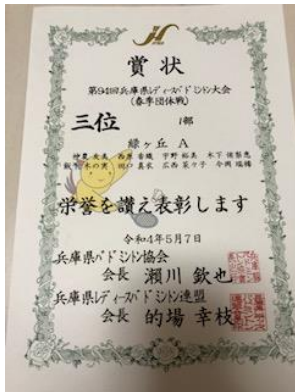 賞状
第94回兵庫県レディースバドミントン大会
(春季団体戦)
三位 1部
緑ヶ丘 A
西原 香織 宇野 裕美 木下
田口 真衣 広西 菜々子 今岡
栄誉を讃え表彰します
令和4年5月7日
兵庫県バドミントン協会
会長 瀬川 欽也
兵庫県レディースバドミントン連盟
会長 的場 幸枝